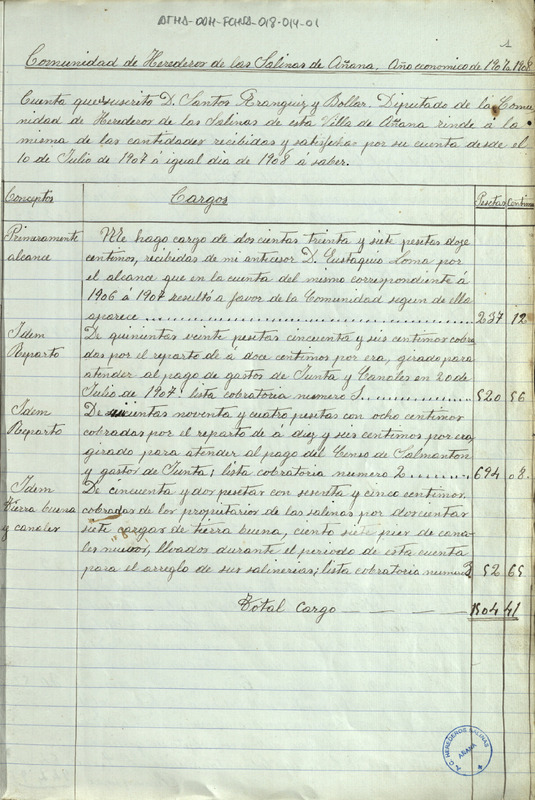 ATHA-DAH-FCHSA-018-014-01
1
Comunidad de Herederos de las Salinas de Añana. Año economico de 1907 á 1908
Cuenta que suscrito D. Santos Aranguiz y Bollar. Diputado de la Comu
nidad de Herederos de las Salinas de esta Villa de Añana rinde á la
misma de las cantidades recibidas y satisfechas por su cuenta desde el
10 de Julio de 1907 á igual dia de 1908 á saber.
Conceptos Cargos Pesetas Centimos
Primeramente Me hago cargo de doscientas treinta y siete pesetas doze
alcance centimos, recibidas de mi antecesor D. Eustaquio Loma por
el alcance que en la cuenta del mismo correspondiente á
1906 á 1907 resulto a favor de la Comunidad segun de ella
aparece 237 12
Idem De quinientas veinte pesetas cincuenta y seis centimos cobra
Reparto das por el reparto de á doce centimos por era, girado para
atender al pago de gastos de Junta y Canales en 20 de
Julio de 1907: lista cobratoria numero 1 520 56
Idem De seiscientas noventa y cuatro pesetas con ocho centimos
Reparto cobradas por el reparto de á diez y seis centimos por era
girado para atender al pago del Censo de Salmanton
y gastos de Junta; lista cobratoria numero 2 694 08
Idem De cincuenta y dos pesetas con sesenta y cinco centimos.
tierra buena cobradas de los propietarios de las salinas por doscientas
y canales siete cargas de tierra buena, ciento siete pies de cana
les nuevos, llevados durante el periodo de esta cuenta
para el arreglo de sus salinerias; lista cobratoria numero 3 52 65
Total cargo 1504 41
HEREDEROS SALINAS
AÑANA